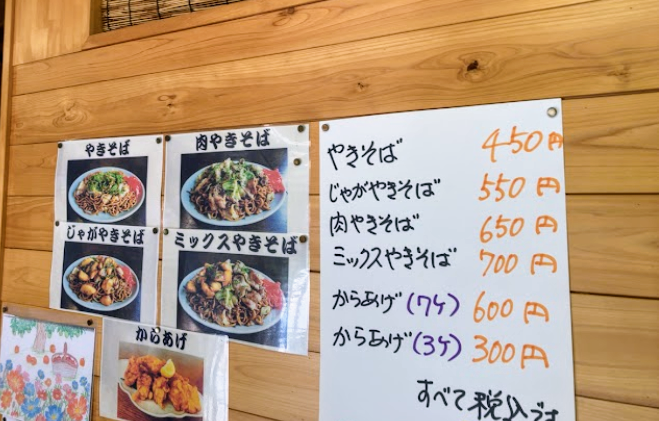 やきそば
肉やきそば
じゃがやきそば
ミックスやきそば
からあげ
やきそば 450円
じゃがやきそば 550円
肉やきそば 650円
ミックスやきそば 700円
からあげ(7ケ) 600円
からあげ(3ケ) 300円
すべて税込です